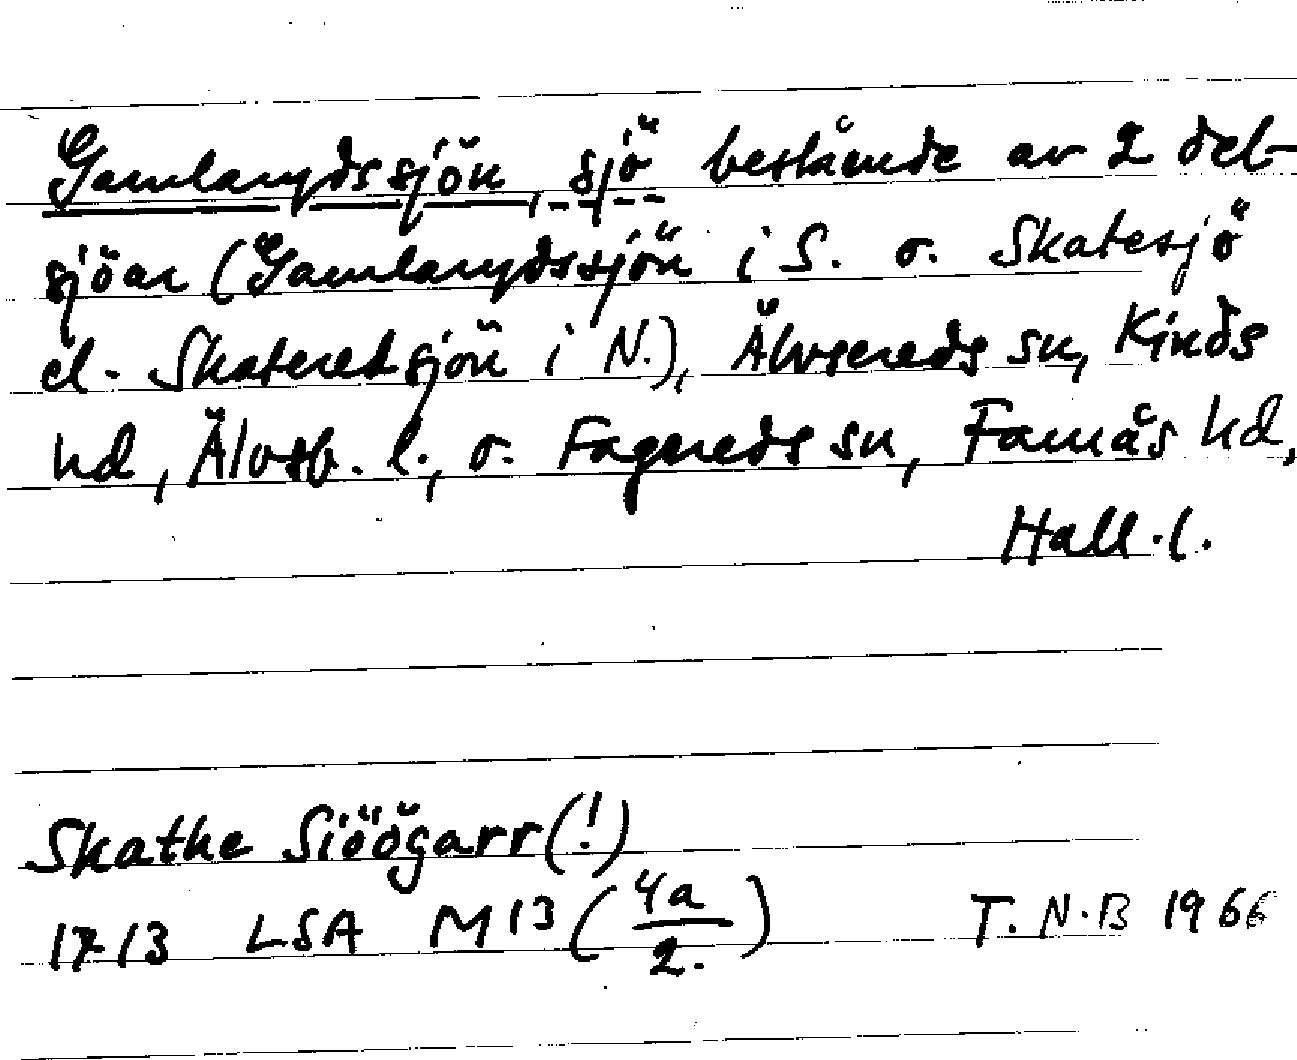 Gamlarydssjön, sjö bestående av 2 del-
sjöar (Gamlarydssjön i S. o. Skatesjö
el. Skateredsjön i N.), Älvsereds sn, Kinds
hd, Älvsb. l., o. Fagereds sn, Faurås hd,
Hall. l.
Skathe Siöögarr(!)
1713 LSA M13 (4a/2.) T. N.B 1966